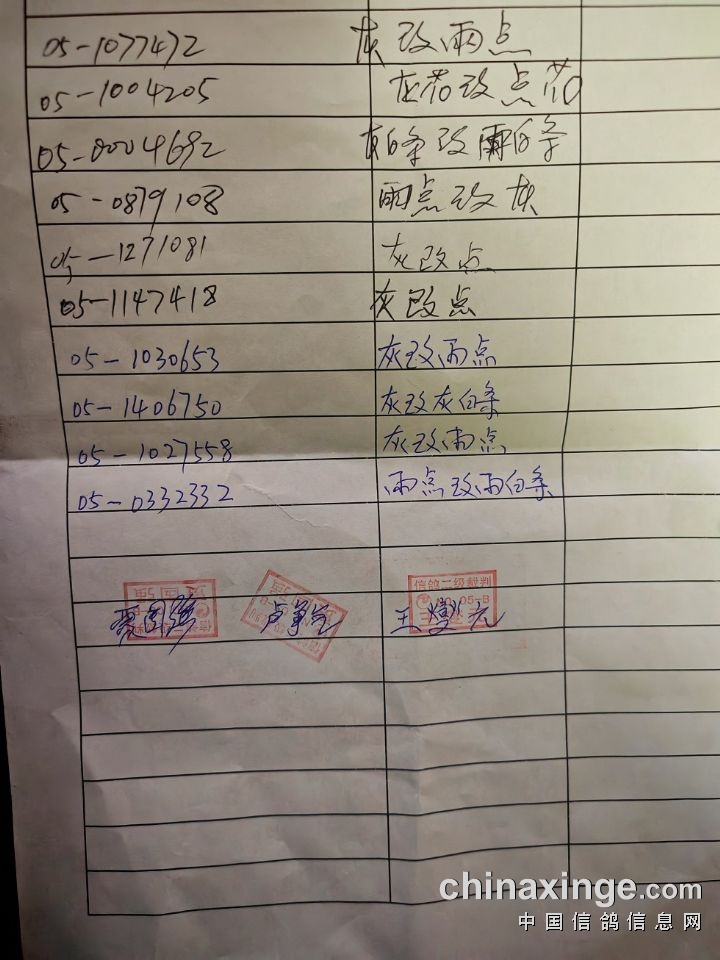 05-1077472 灰改雨点
05-1004205 灰花改点花
05-0004692 灰白条改雨白条
05-0879108 雨点改灰
05-1271081 灰改点
05-1147418 灰改点
05-1030653 灰改雨点
05-1406750 灰改灰白条
05-1027558 灰改雨点
05-0332332 雨点改雨白条
信鸽二级裁判
05-B
王
chinaxinge.com
中国信鸽信息网